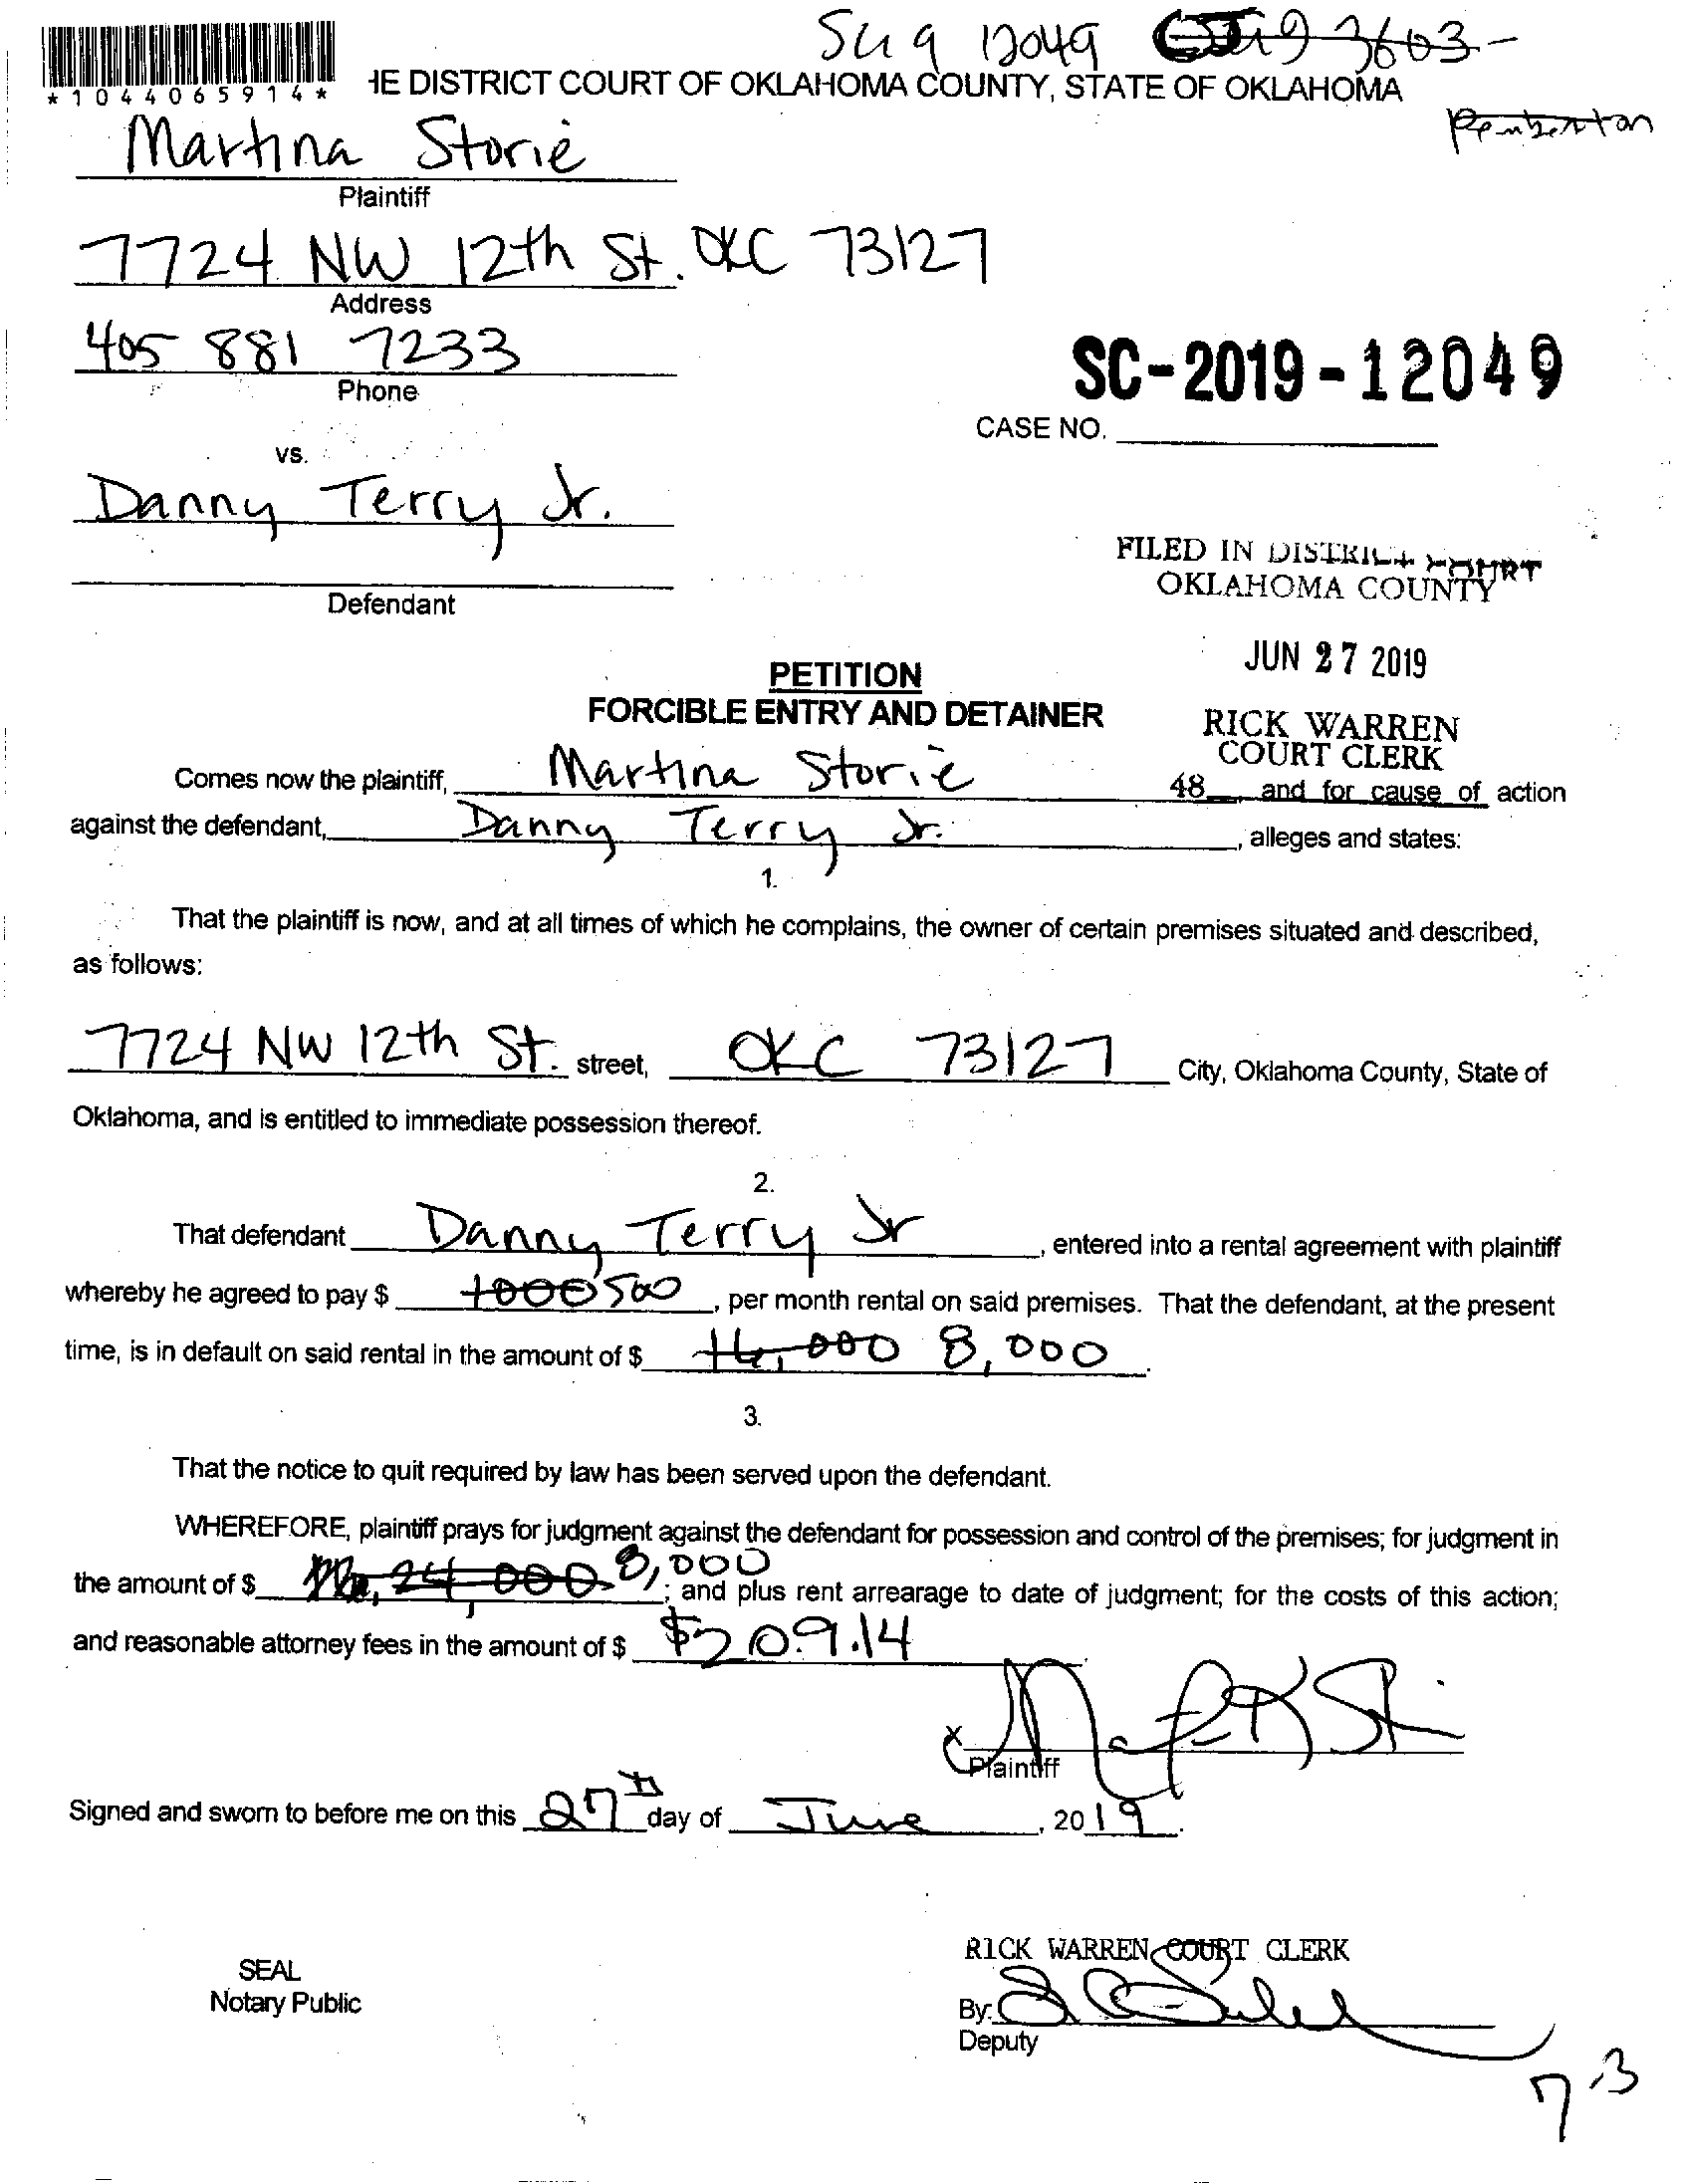 12049 CJ19 3603-
*1044065914* HE DISTRICT COURT OF OKLAHOMA COUNTY, STATE OF OKLAHOMA
Pemberton
Martina Storie
Plaintiff
7724 NW 12th St. OKC 73127
Address
405 881 7233
Phone
SC-2019-12049
CASE NO.
vs.
Danny Terry Jr.
Defendant
FILED IN DISTRICT COURT
OKLAHOMA COUNTY
JUN 27 2019
PETITION
FORCIBLE ENTRY AND DETAINER
RICK WARREN
COURT CLERK
Comes now the plaintiff, Martina Storie 48 , and for cause of action
against the defendant, Danny Terry Jr. , alleges and states:
1.
That the plaintiff is now, and at all times of which he complains, the owner of certain premises situated and described,
as follows:
7724 NW 12th St. street, OKC 73127 City, Oklahoma County, State of
Oklahoma, and is entitled to immediate possession thereof.
2.
That defendant Danny Terry Jr , entered into a rental agreement with plaintiff
whereby he agreed to pay $ 1000 500 , per month rental on said premises. That the defendant, at the present
time, is in default on said rental in the amount of $ 16,000 8,000 .
3.
That the notice to quit required by law has been served upon the defendant.
WHEREFORE, plaintiff prays for judgment against the defendant for possession and control of the premises; for judgment in
the amount of $ 24,000 8,000 ; and plus rent arrearage to date of judgment; for the costs of this action;
and reasonable attorney fees in the amount of $ $209.14
x
Plaintiff
Signed and sworn to before me on this 27th day of June , 2019 .
RICK WARREN COURT CLERK
SEAL
Notary Public
By:
Deputy
7-3